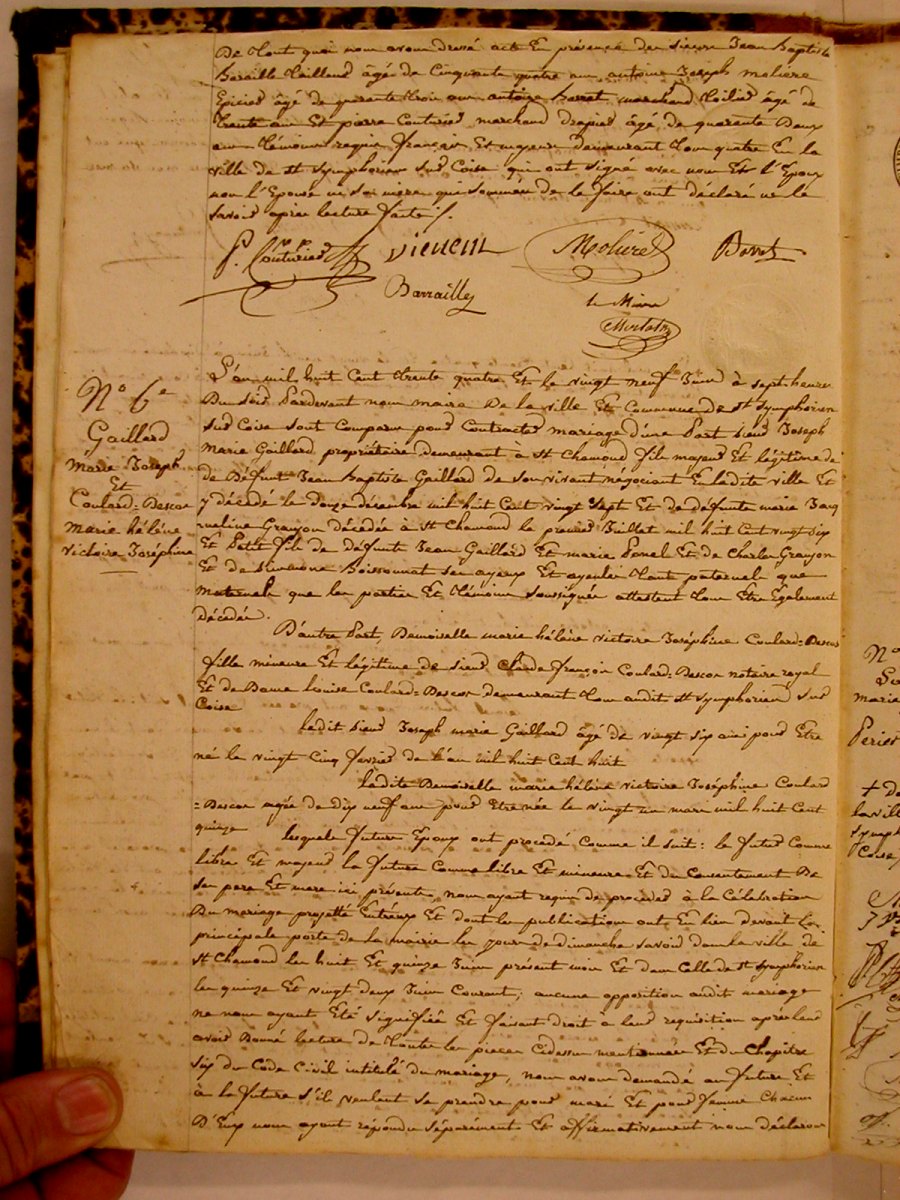 De tout quoi nous avons dressé acte En présence des sieurs Jean Baptiste
Baraille tailleur âgé de Cinquante quatre ans, antoine Joseph molière
Epicier âgé de quarante trois ans antoine marchand toilier âgé de
trente ans Et pierre Couturier marchand drapier âgé de quarante Deux
ans témoins requis français Et majeurs demeurant tous quatre En la
ville de st Symphorien sur Coise qui ont signé avec nous Et l'Epoux
non l'Epouse ni sa mère qui sommées de le faire ont déclaré ne le
savoir après lecture faite ./.
P. Couturier
Molière
Barrailley
le Maire
No 6e
Gaillard
Marie Joseph
Et
Coulard=Descos
Marie hélène
victoire Joséphine
L'an mil huit Cent trente quatre Et le vingt neuf Juin à sept heures
Du soir Pardevant nous maire De la ville Et Commune de St Symphorien
sur Coise sont Comparus pour Contracter mariage d'une Part sieur Joseph
Marie Gaillard propriétaire demeurant à St Chamond fils majeur Et légitime de
de Défunt Jean Baptiste Gaillard de son vivant négociant En ladite ville Et
y décédé le Douze décembre mil huit Cent vingt Sept Et de défunte marie Jacq
ueline Granjon décédée à St Chamond le premier Juillet mil huit Cent vingt six
Et Petit fils de défunts Jean Gaillard Et marie Et de Charles Granjon
Et de Boissonnat ses ayeux Et ayeules tant paternels que
Maternels que les parties Et témoins soussignés attestent tous Etre Egalement
décédés.
D'autre Part, Demoiselle marie hélène victoire Joséphine Coulard=Descos
fille mineure Et légitime de sieur Claude françois Coulard=Descos notaire royal
Et de Dame Louise Coulard=Descos demeurant tous audit St Symphorien sur
Coise
Ledit sieur Joseph marie Gaillard âgé de vingt six ans pour Etre
né le vingt Cinq février de l'an mil huit Cent huit
Ladite Demoiselle marie hélène victoire Joséphine Coulard
=Descos agée de dix neuf ans pour Etre née le vingt un mars mil huit Cent
quinze lesquels futurs Epoux ont procédé Comme il suit : le futur Comme
libre Et majeur la future Comme libre Et mineure Et du Consentement De
ses père Et mère ici présents, nous ayant requis de procéder à la Célébration
Du mariage projetté Entr'eux Et dont les publications ont Eu lieu devant la
principale porte de la mairie les jours de dimanche savoir dans la ville de
St Chamond les huit Et quinze Juin présent mois Et dans Celle de St Symphorien
les quinze Et vingt deux Juin Courant ; aucune opposition audit mariage
ne nous ayant Eté signifiée Et faisant droit à leur requisition après leur
avoir Donné lecture de toutes les pièces Cidessus mentionnées Et du Chapitre
six du Code Civil intitulé du mariage, nous avons demandé au futur Et
à la future S'ils veulent se prendre pour mari Et pour femme Chacun
D'Eux nous ayant répondu séparément Et affirmativement nous déclarons